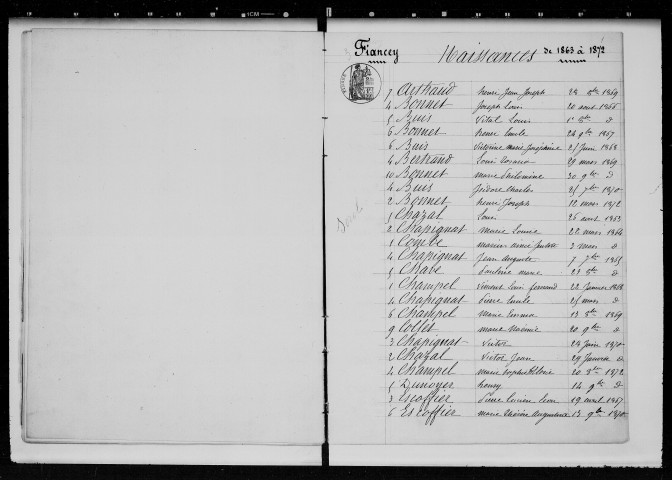 Fiancey Naissances de 1863 à 1872
7 Artaud henri Jean Joseph 28 8bre 1869
4 Bonnet Joseph Louis 20 aout 1866
5 Buis Vital Louis 1er 8bre d
5 Bonnet henri Emile 24 9bre 1867
6 Buis Victorine marie Joséphine 21 Juin 1868
4 Bertrand Louis 29 mars 1869
10 Bonnet marie Philomène 30 9bre d
4 Buis Isidore Charles 25 7bre 1870
2 Bonnet henri Joseph 12 mars 1872
1 Chazal Louis 26 avril 1863
2 Chapignat marie Louise 22 mars 1864
1 Combe marius aimé 3 mars d
4 Chapignat Jean Auguste 7 7bre 1865
5 Chave marie 23 8bre d
1 Champel Vincent Louis fernand 22 Janvier 1868
4 Chapignat Emile 25 mars d
6 Champel Marie Emma 13 8bre 1869
9 Collet marie Noémie 20 9bre d
3 Chapignat Victor 24 Juin 1870
2 Chazal Victor Jean 29 Janvier d
4 Champel marie Sophie 20 8bre 1872
5 Dunoyer henry 14 9bre d
3 Escoffier Lucien Léon 19 avril 1867
6 Escoffier marie Augustine 13 9bre 1870